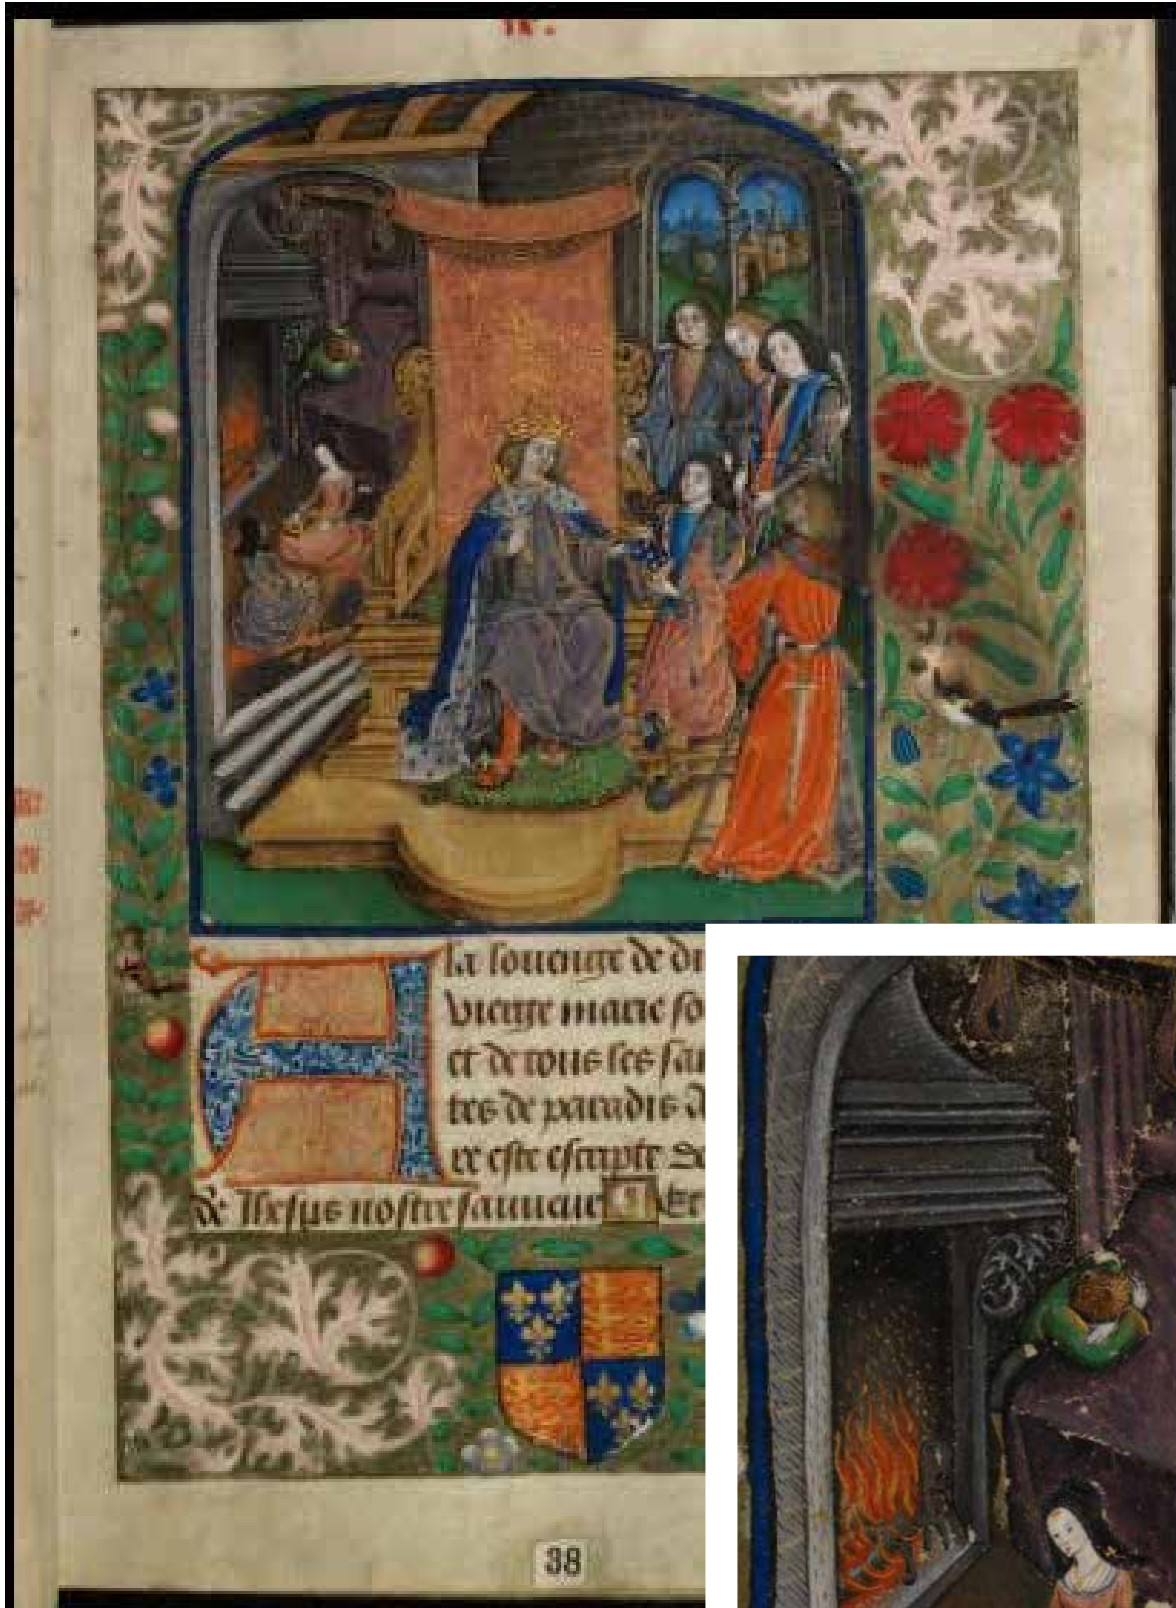 IX.
A la louenge de di
vierge marie so
et de tous les sai
tes de paradis A
re este escripte de
de Ihesus nostre sauueur Et
38